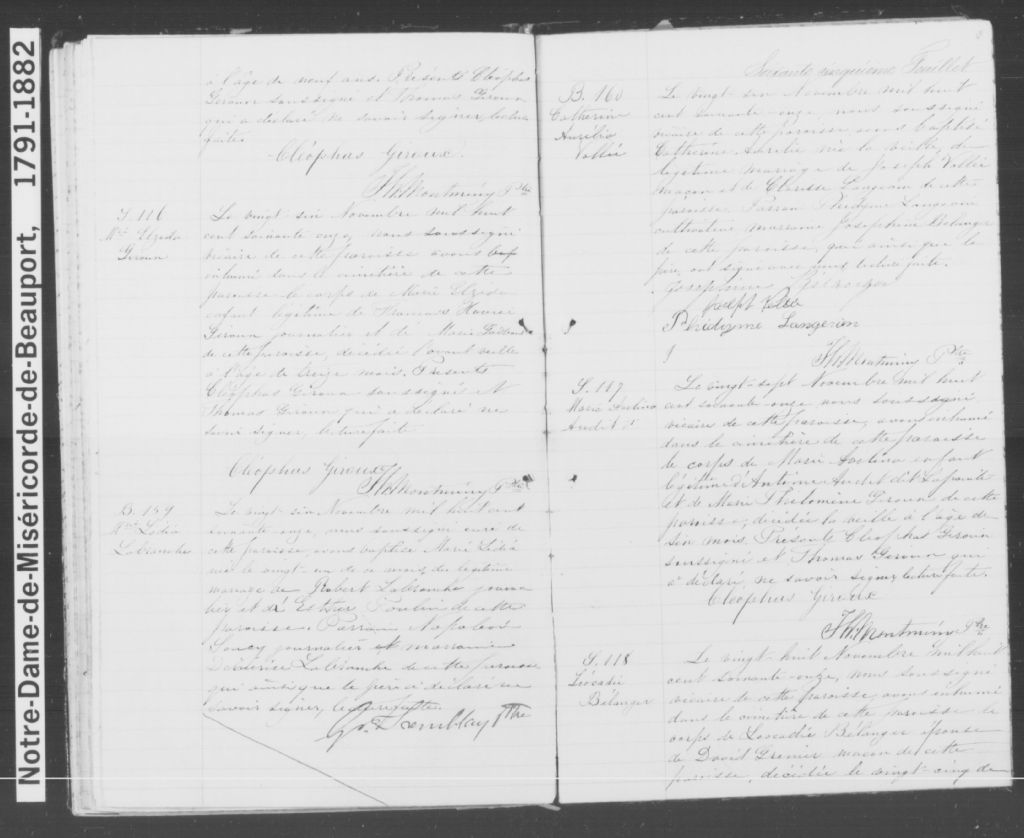 Notre-Dame-de-Miséricorde-de-Beauport, 1791-1882
à l'âge de neuf ans. Présents Cléophas
Giroux soussigné et Thomas Giroux
qui a déclaré ne savoir signer, lecture
faite.
Cléophas Giroux.
Th. Montminy Ptre
S. 116
Mie Elzida
Giroux
Le vingt six Novembre mil huit
cent soixante onze, nous soussigné
vicaire de cette paroisse avons
inhumé dans le cimetière de cette
paroisse le corps de Marie Elzida
enfant légitime de Thomas Xavier
Giroux journalier et de Marie
de cette paroisse, décédée l'avant veille
à l'âge de treize mois. Présents
Cléophas Giroux soussigné et
Thomas Giroux qui a déclaré ne
savoir signer, lecture faite
Cléophas Giroux
Th. Montminy Ptre
B. 159
Mie Lédia
Labranche
Le vingt six Novembre mil huit cent
soixante onze, nous soussigné curé de
cette paroisse, avons baptisé Marie Lédia
née le vingt-un de ce mois, du légitime
mariage de Robert Labranche journa
lier et de Esther Poulin de cette
paroisse. Parrain Napoléon
Soucy journalier et marraine
Labranche de cette paroisse
qui ainsi que le père a déclaré ne
savoir signer, lecture faite.
Tremblay Ptre
Soixante cinquième Feuillet
B. 160
Catherine
Aurélie
Vallée
Le vingt six Novembre mil huit
cent soixante onze, nous soussigné
vicaire de cette paroisse, avons baptisé
Catherine Aurélie née la veille, du
légitime mariage de Joseph Vallée
maçon et de Clarisse Langevin de cette
paroisse. Parrain Phidyme Langevin
cultivateur, marraine Josephine Bélanger
de cette paroisse, qui ainsi que le
père, ont signé avec nous, lecture faite.
Josephine Bélanger
Joseph Vallée
Phidyme Langevin
Th. Montminy Ptre
S. 117
Marie
Audet
Le vingt-sept Novembre mil huit
cent soixante-onze nous soussigné
vicaire de cette paroisse, avons inhumé
dans le cimetière de cette paroisse
le corps de Marie enfant
légitime d'Antoine Audet dit Lapointe
et de Marie Philomène Giroux de cette
paroisse, décédée la veille à l'âge de
six mois. Présents Cléophas Giroux
soussigné et Thomas Giroux qui
a déclaré ne savoir signer, lecture faite.
Cléophas Giroux
Th. Montminy Ptre
S. 118
Léocadie
Bélanger
Le vingt-huit Novembre mil huit
cent soixante-onze, nous soussigné
vicaire de cette paroisse, avons inhumé
dans le cimetière de cette paroisse le
corps de Léocadie Bélanger épouse
de David Grenier maçon de cette
paroisse, décédée le vingt-cinq de